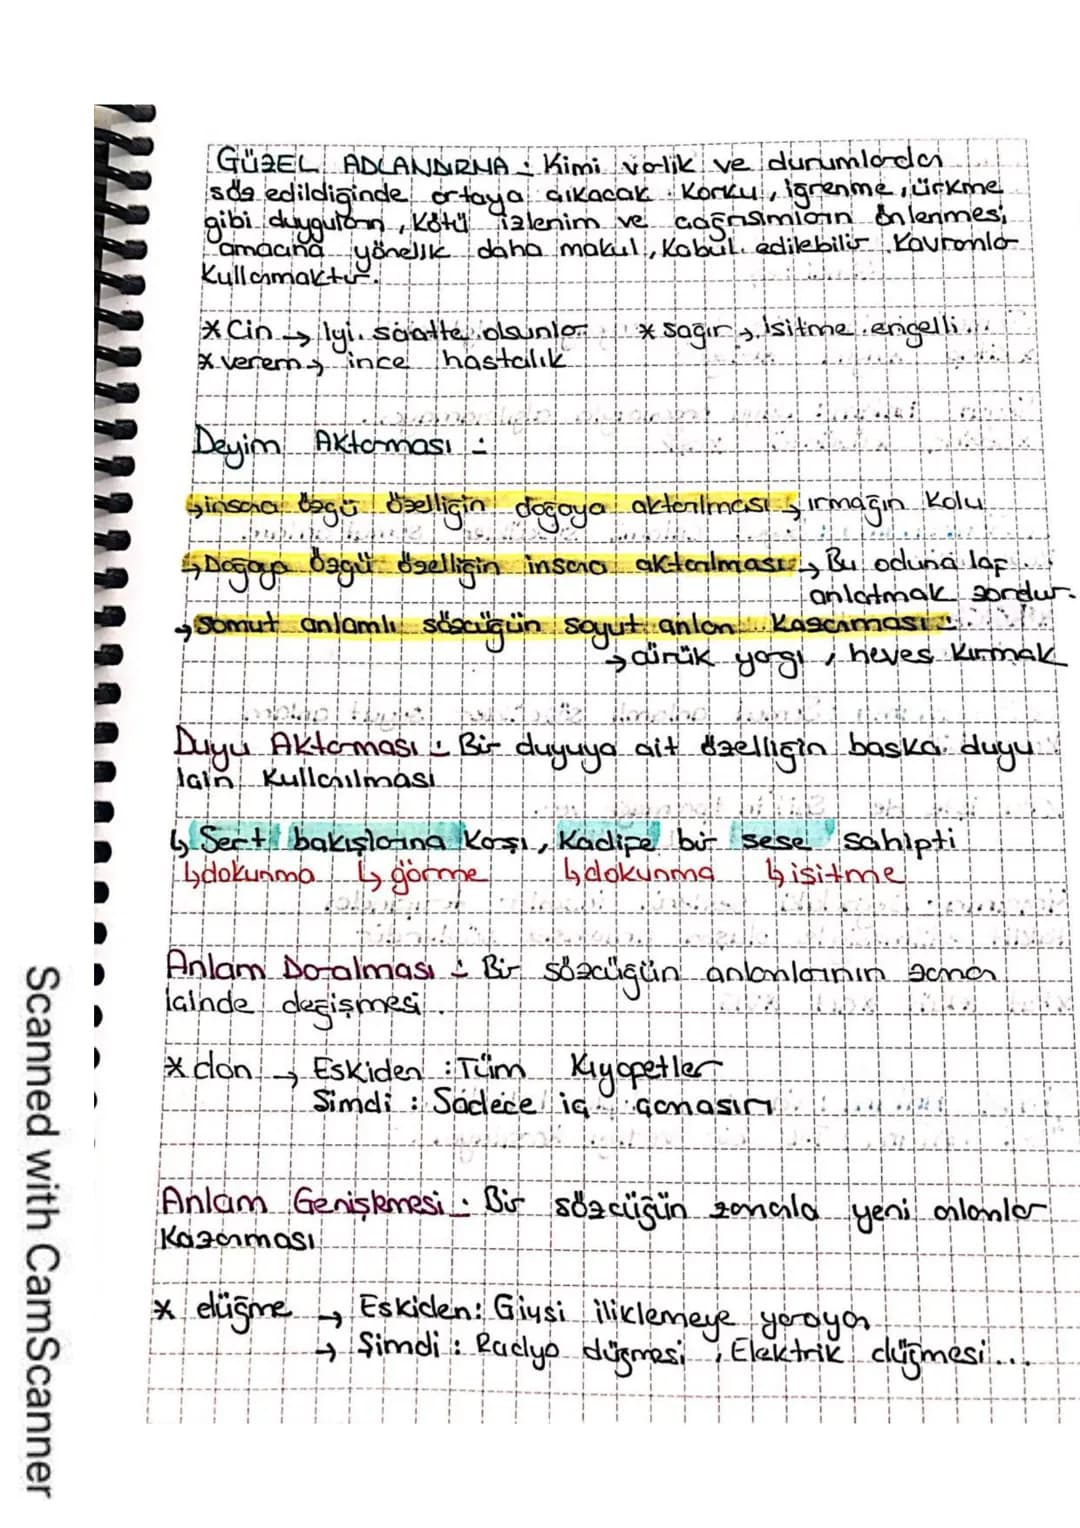 GÜZEL ADLANDIRMA : Kimi varlık ve durumlardan
söz edildiğinde ortaya çıkacak korku, iğrenme, ürkme
gibi duyguların, kötü izlenim ve çağrışımların önlenmesi
amacına yönelik daha makul, kabul edilebilir kavramlar
kullanmaktır.
* Cin → İyi saatte olsunlar * sağır → işitme engelli
* verem → ince hastalık
Deyim Aktarması :
↳ insana özgü özelliğin doğaya aktarılması → ırmağın kolu
↳ Doğaya özgü özelliğin insana aktarılması → Bu oduna laf
anlatmak zordur.
→ Somut anlamlı sözcüğün soyut anlam kazanması :
→ çürük yargı, heves kırmak
Duyu Aktarması : Bir duyuya ait özelliğin başka duyu
için kullanılması
↳ Sert bakışlarına karşı, Kadife bir sese sahipti
↳ dokunma ↳ görme ↳ dokunma ↳ işitme
Anlam Daralması : Bir sözcüğün anlamlarının zaman
içinde değişmesi.
* don → Eskiden : Tüm kıyafetler
Şimdi : Sadece iç çamaşırı
Anlam Genişlemesi : Bir sözcüğün zamanla yeni anlamlar
kazanması
* düğme → Eskiden: Giysi iliklemeye yarayan
→ Şimdi : Radyo düğmesi, Elektrik düğmesi...
Scanned with CamScanner